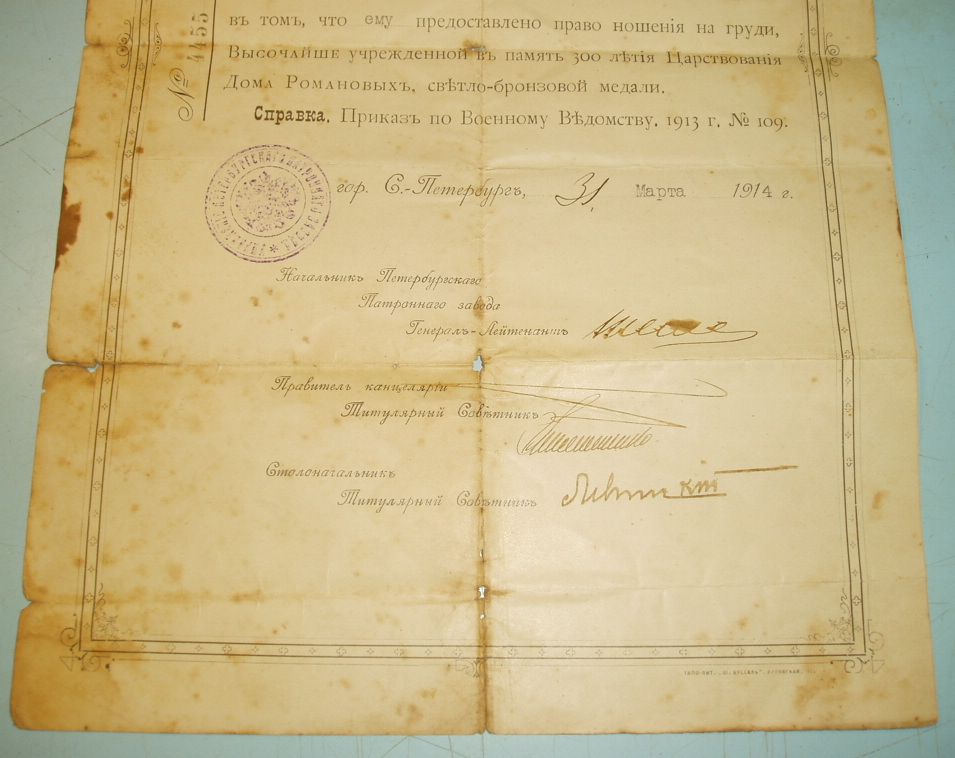 въ томъ, что ему предоставлено право ношенія на груди,
Высочайше учрежденной въ память 300 лѣтія Царствованія
Дома Романовыхъ, свѣтло-бронзовой медали.
№ 4455
Справка. Приказъ по Военному Вѣдомству, 1913 г. № 109.
гор. С.-Петербургъ, 31 Марта 1914 г.
Начальникъ Петербургскаго
Патроннаго завода
Генералъ-Лейтенантъ
Правитель канцеляріи
Титулярный Совѣтникъ
Столоначальникъ
Титулярный Совѣтникъ
Левицкій